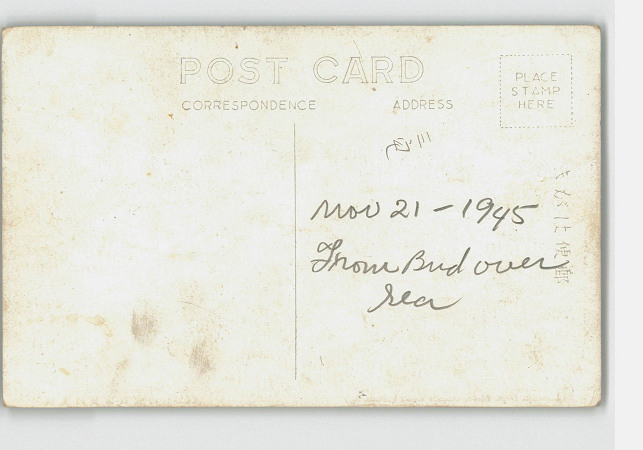 POST CARD
CORRESPONDENCE ADDRESS
PLACE
STAMP
HERE
Nov 21 - 1945
From Bud over
sea